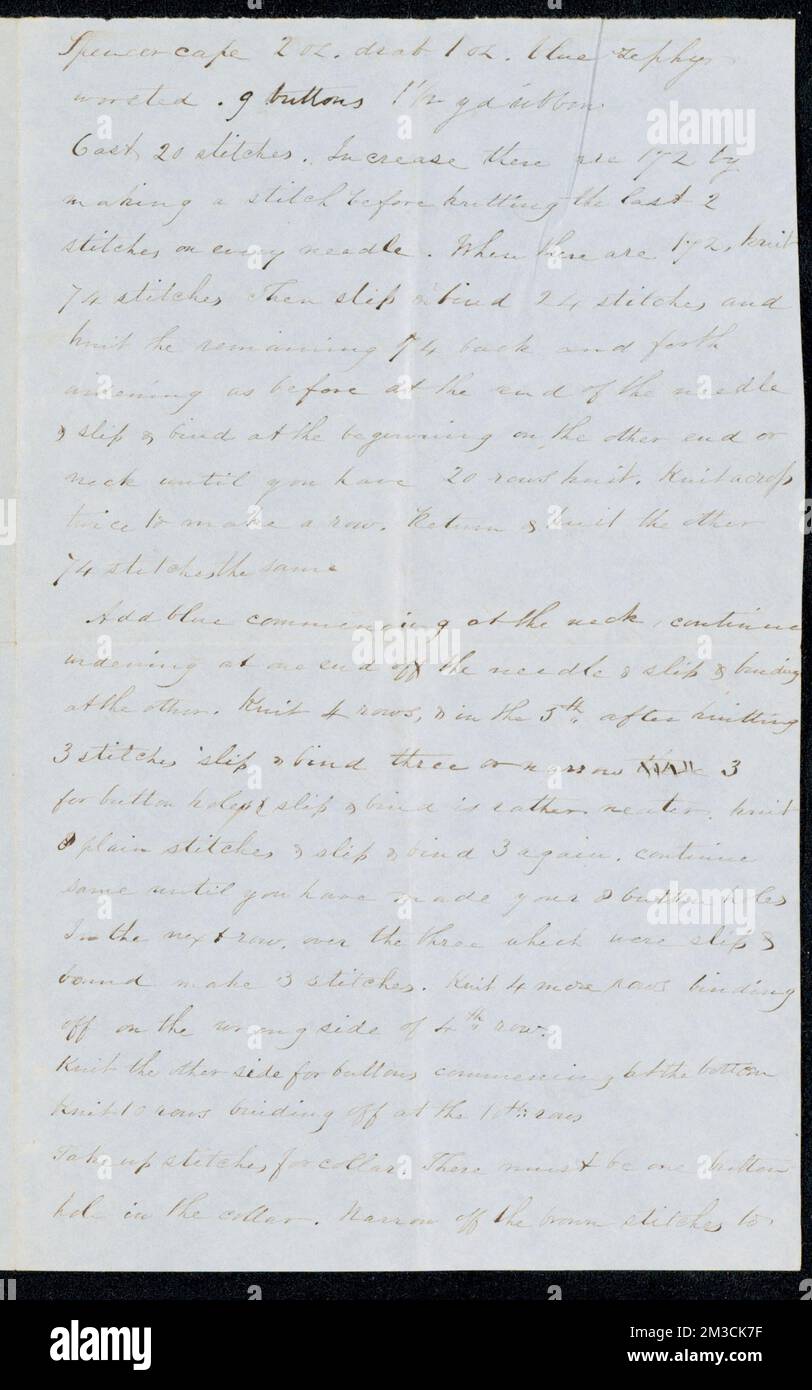 Spencer cape 2 oz. drab 1 oz. blue zephyr
worsted. 9 buttons 1½ yd ribbon
Cast 20 stitches. Increase there are 172 by
making a stitch before knitting the last 2
stitches on every needle. When there are 172, knit
74 stitches then slip & bind 24 stitches and
knit the remaining 74 back and forth
widening as before at the end of the needle
& slip & bind at the beginning on the other end or
neck until you have 20 rows knit. Knit across
twice to make a row. Return & knit the other
74 stitches the same
Add blue commencing at the neck, continue
widening at one end of the needle & slip & binding
at the other. Knit 4 rows, & in the 5th, after knitting
3 stitches slip & bind three or narrow 3
for button holes slip & bind is rather neater. knit
8 plain stitches & slip & bind 3 again. continue
same until you have made your 8 button holes
In the next row, over the three which were slip &
bound make 3 stitches. Knit 4 more rows binding
off on the wrong side of 4th row.
Knit the other side for buttons commencing at the bottom
Knit 10 rows binding off at the 10th row
Take up stitches for collar. There must be one button
hole in the collar. Narrow off the brown stitches to
alamy
Image ID: 2M3CK7F
www.alamy.com